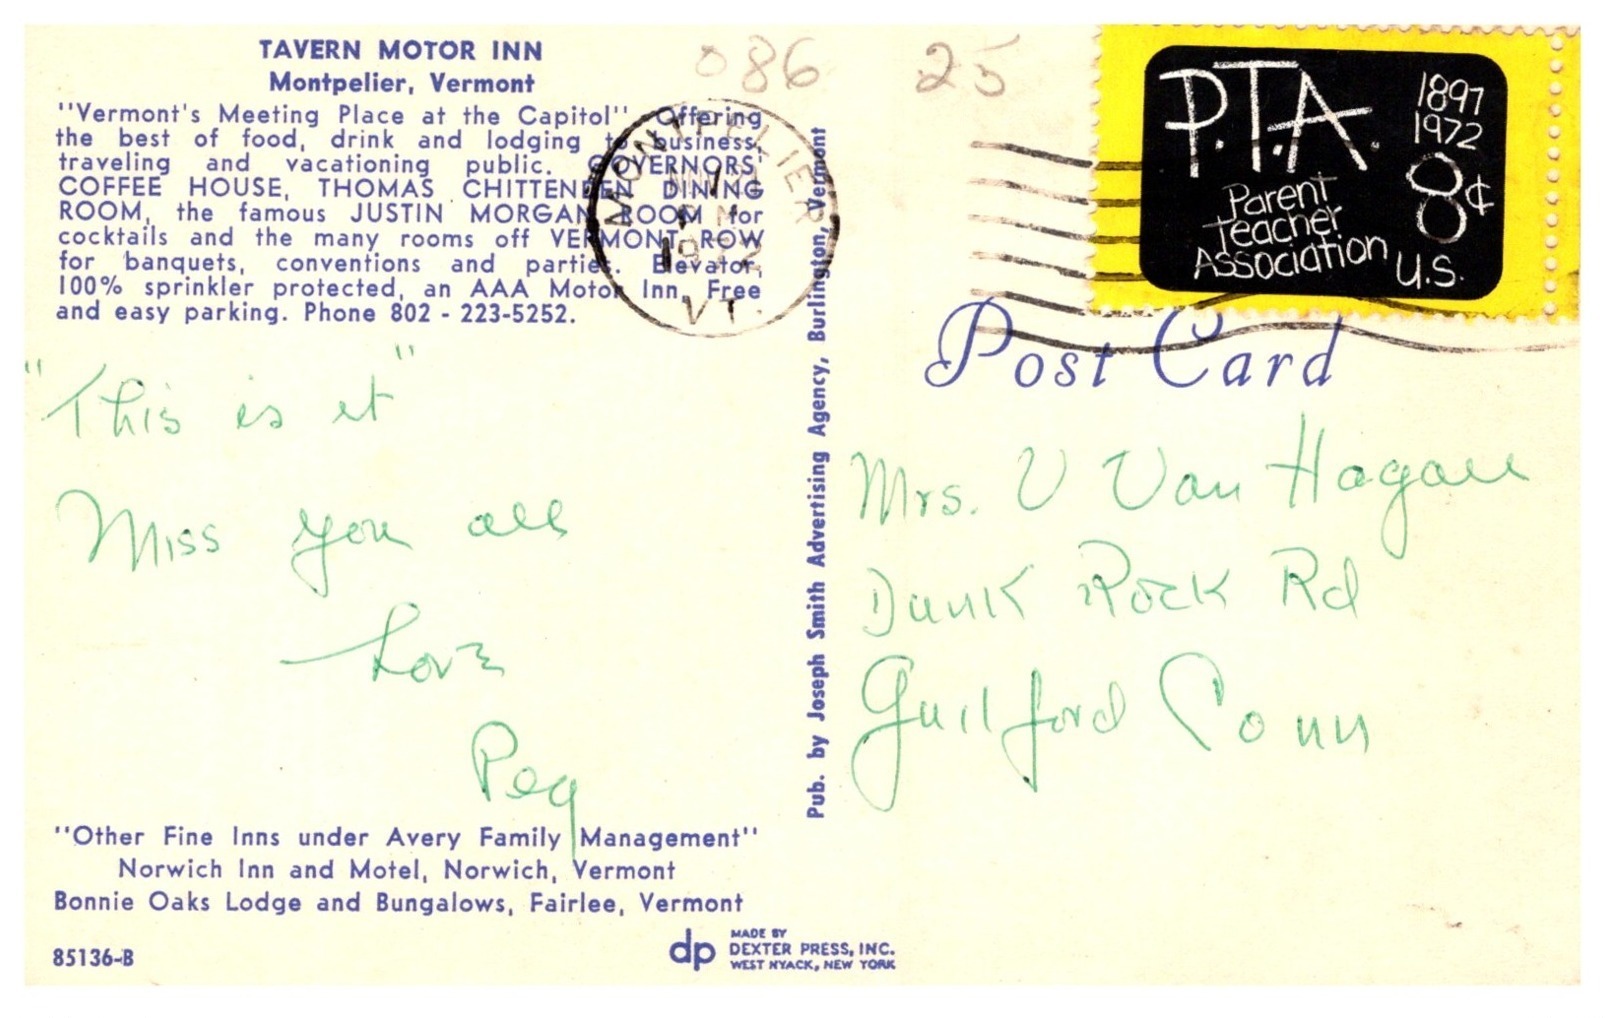 TAVERN MOTOR INN
Montpelier, Vermont
"Vermont's Meeting Place at the Capitol" Offering
the best of food, drink and lodging to business,
traveling and vacationing public. GOVERNORS'
COFFEE HOUSE, THOMAS CHITTENDEN DINING
ROOM, the famous JUSTIN MORGAN ROOM for
cocktails and the many rooms off VERMONT ROW
for banquets, conventions and parties. Elevator,
100% sprinkler protected, an AAA Motor Inn. Free
and easy parking. Phone 802 - 223-5252.
086
25
MONTPELIER
1972
VT.
P.T.A.
1897
1972
8¢
Parent
Teacher
Association
U.S.
Post Card
"This is it"
Miss you all
Love
Peg
Mrs. V Van Hagan
Dunk Rock Rd
Guilford Conn
Pub. by Joseph Smith Advertising Agency, Burlington, Vermont
"Other Fine Inns under Avery Family Management"
Norwich Inn and Motel, Norwich, Vermont
Bonnie Oaks Lodge and Bungalows, Fairlee, Vermont
85136-B
dp
MADE BY
DEXTER PRESS, INC.
WEST NYACK, NEW YORK